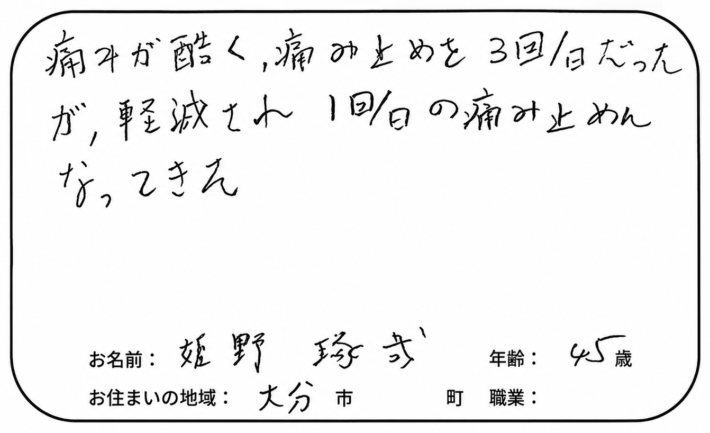 痛みが酷く,痛み止めを3回/日だった
が,軽減され 1回/日の痛み止めに
なってきた
お名前： 姫野 琢弐 年齢： 45歳
お住まいの地域： 大分 市 町 職業：